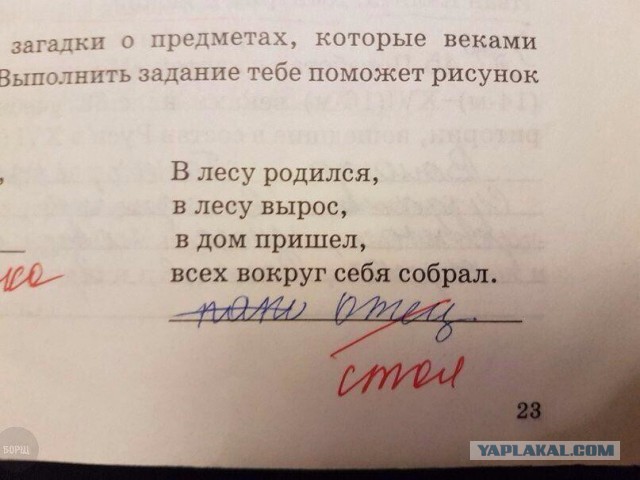 загадки о предметах, которые веками
Выполнить задание тебе поможет рисунок
В лесу родился,
в лесу вырос,
в дом пришел,
всех вокруг себя собрал.
отец.
стол
23
YAPLAKAL.COM
БОРЩ